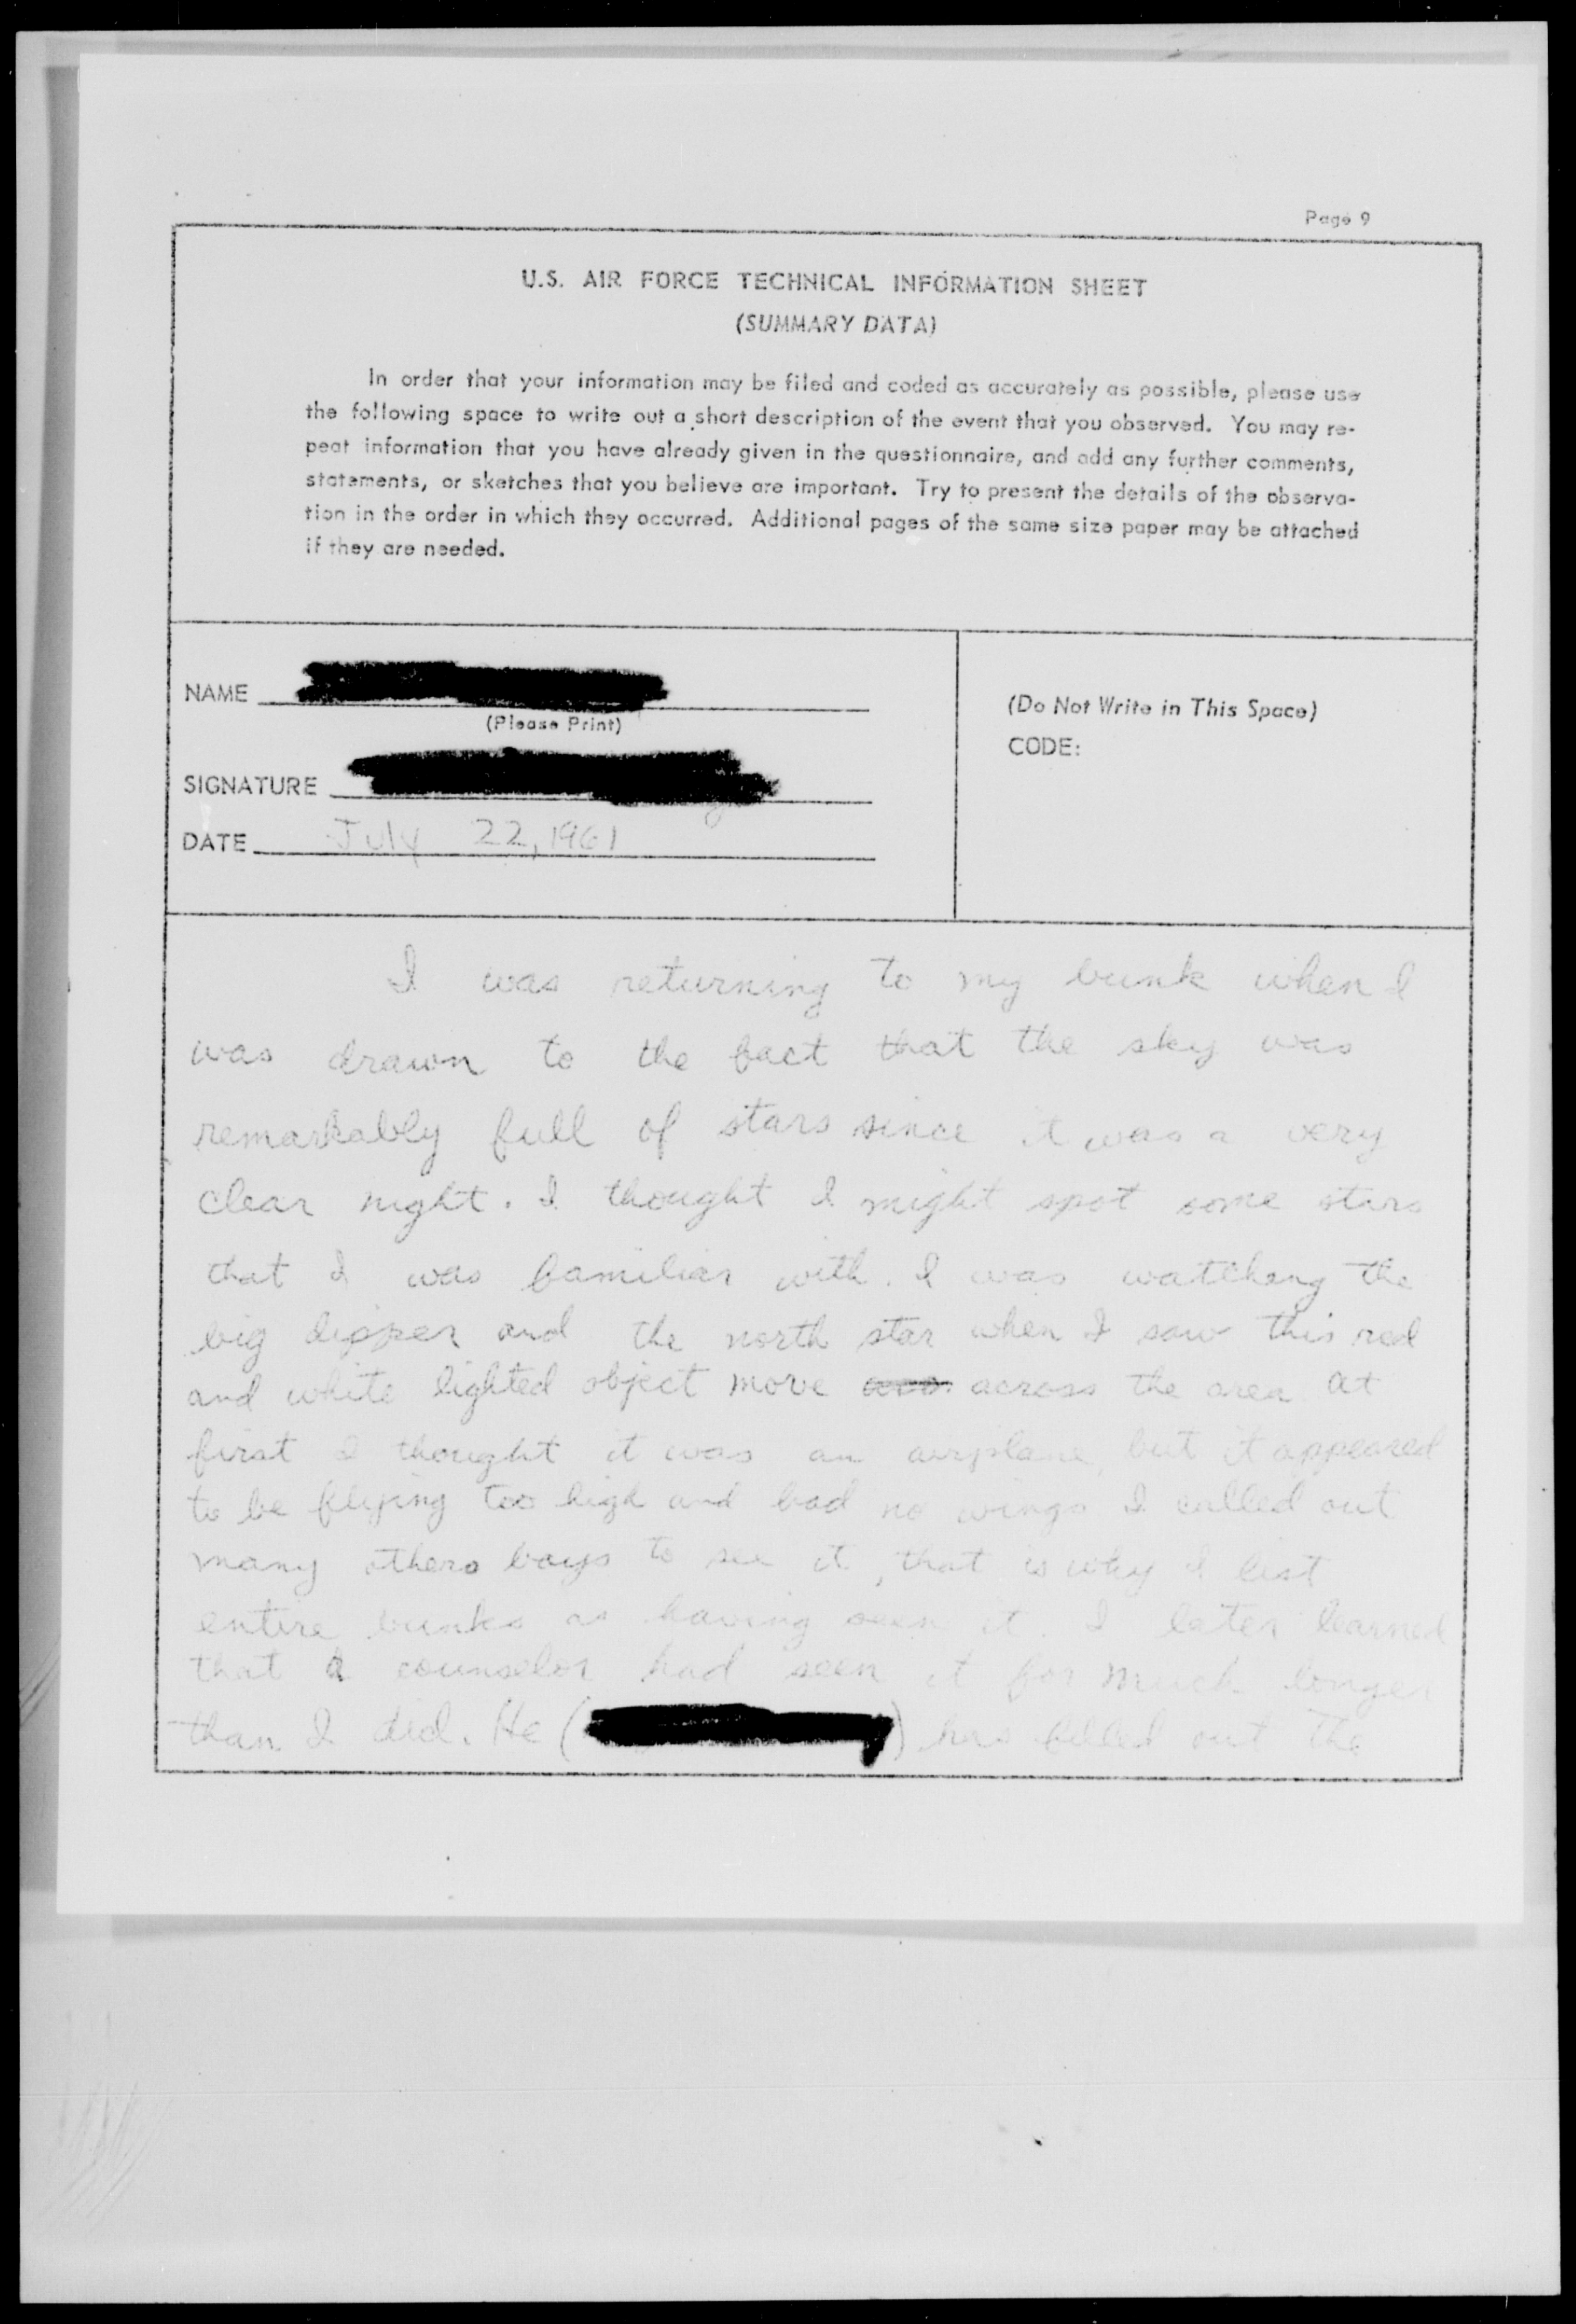 Page 9
U.S. AIR FORCE TECHNICAL INFORMATION SHEET
(SUMMARY DATA)
In order that your information may be filed and coded as accurately as possible, please use
the following space to write out a short description of the event that you observed. You may re-
peat information that you have already given in the questionnaire, and add any further comments,
statements, or sketches that you believe are important. Try to present the details of the observa-
tion in the order in which they occurred. Additional pages of the same size paper may be attached
if they are needed.
NAME
(Please Print)
SIGNATURE
DATE July 22, 1961
(Do Not Write in This Space)
CODE:
I was returning to my bunk when I
was drawn to the fact that the sky was
remarkably full of stars since it was a very
clear night. I thought I might spot some stars
that I was familiar with. I was watching the
big dipper and the north star when I saw this red
and white lighted object move across the area At
first I thought it was an airplane, but it appeared
to be flying too high and had no wings I called out
many others boys to see it, that is why I list
entire bunks as having seen it. I later learned
that a counselor had seen it for much longer
than I did. He ( ) has filled out the